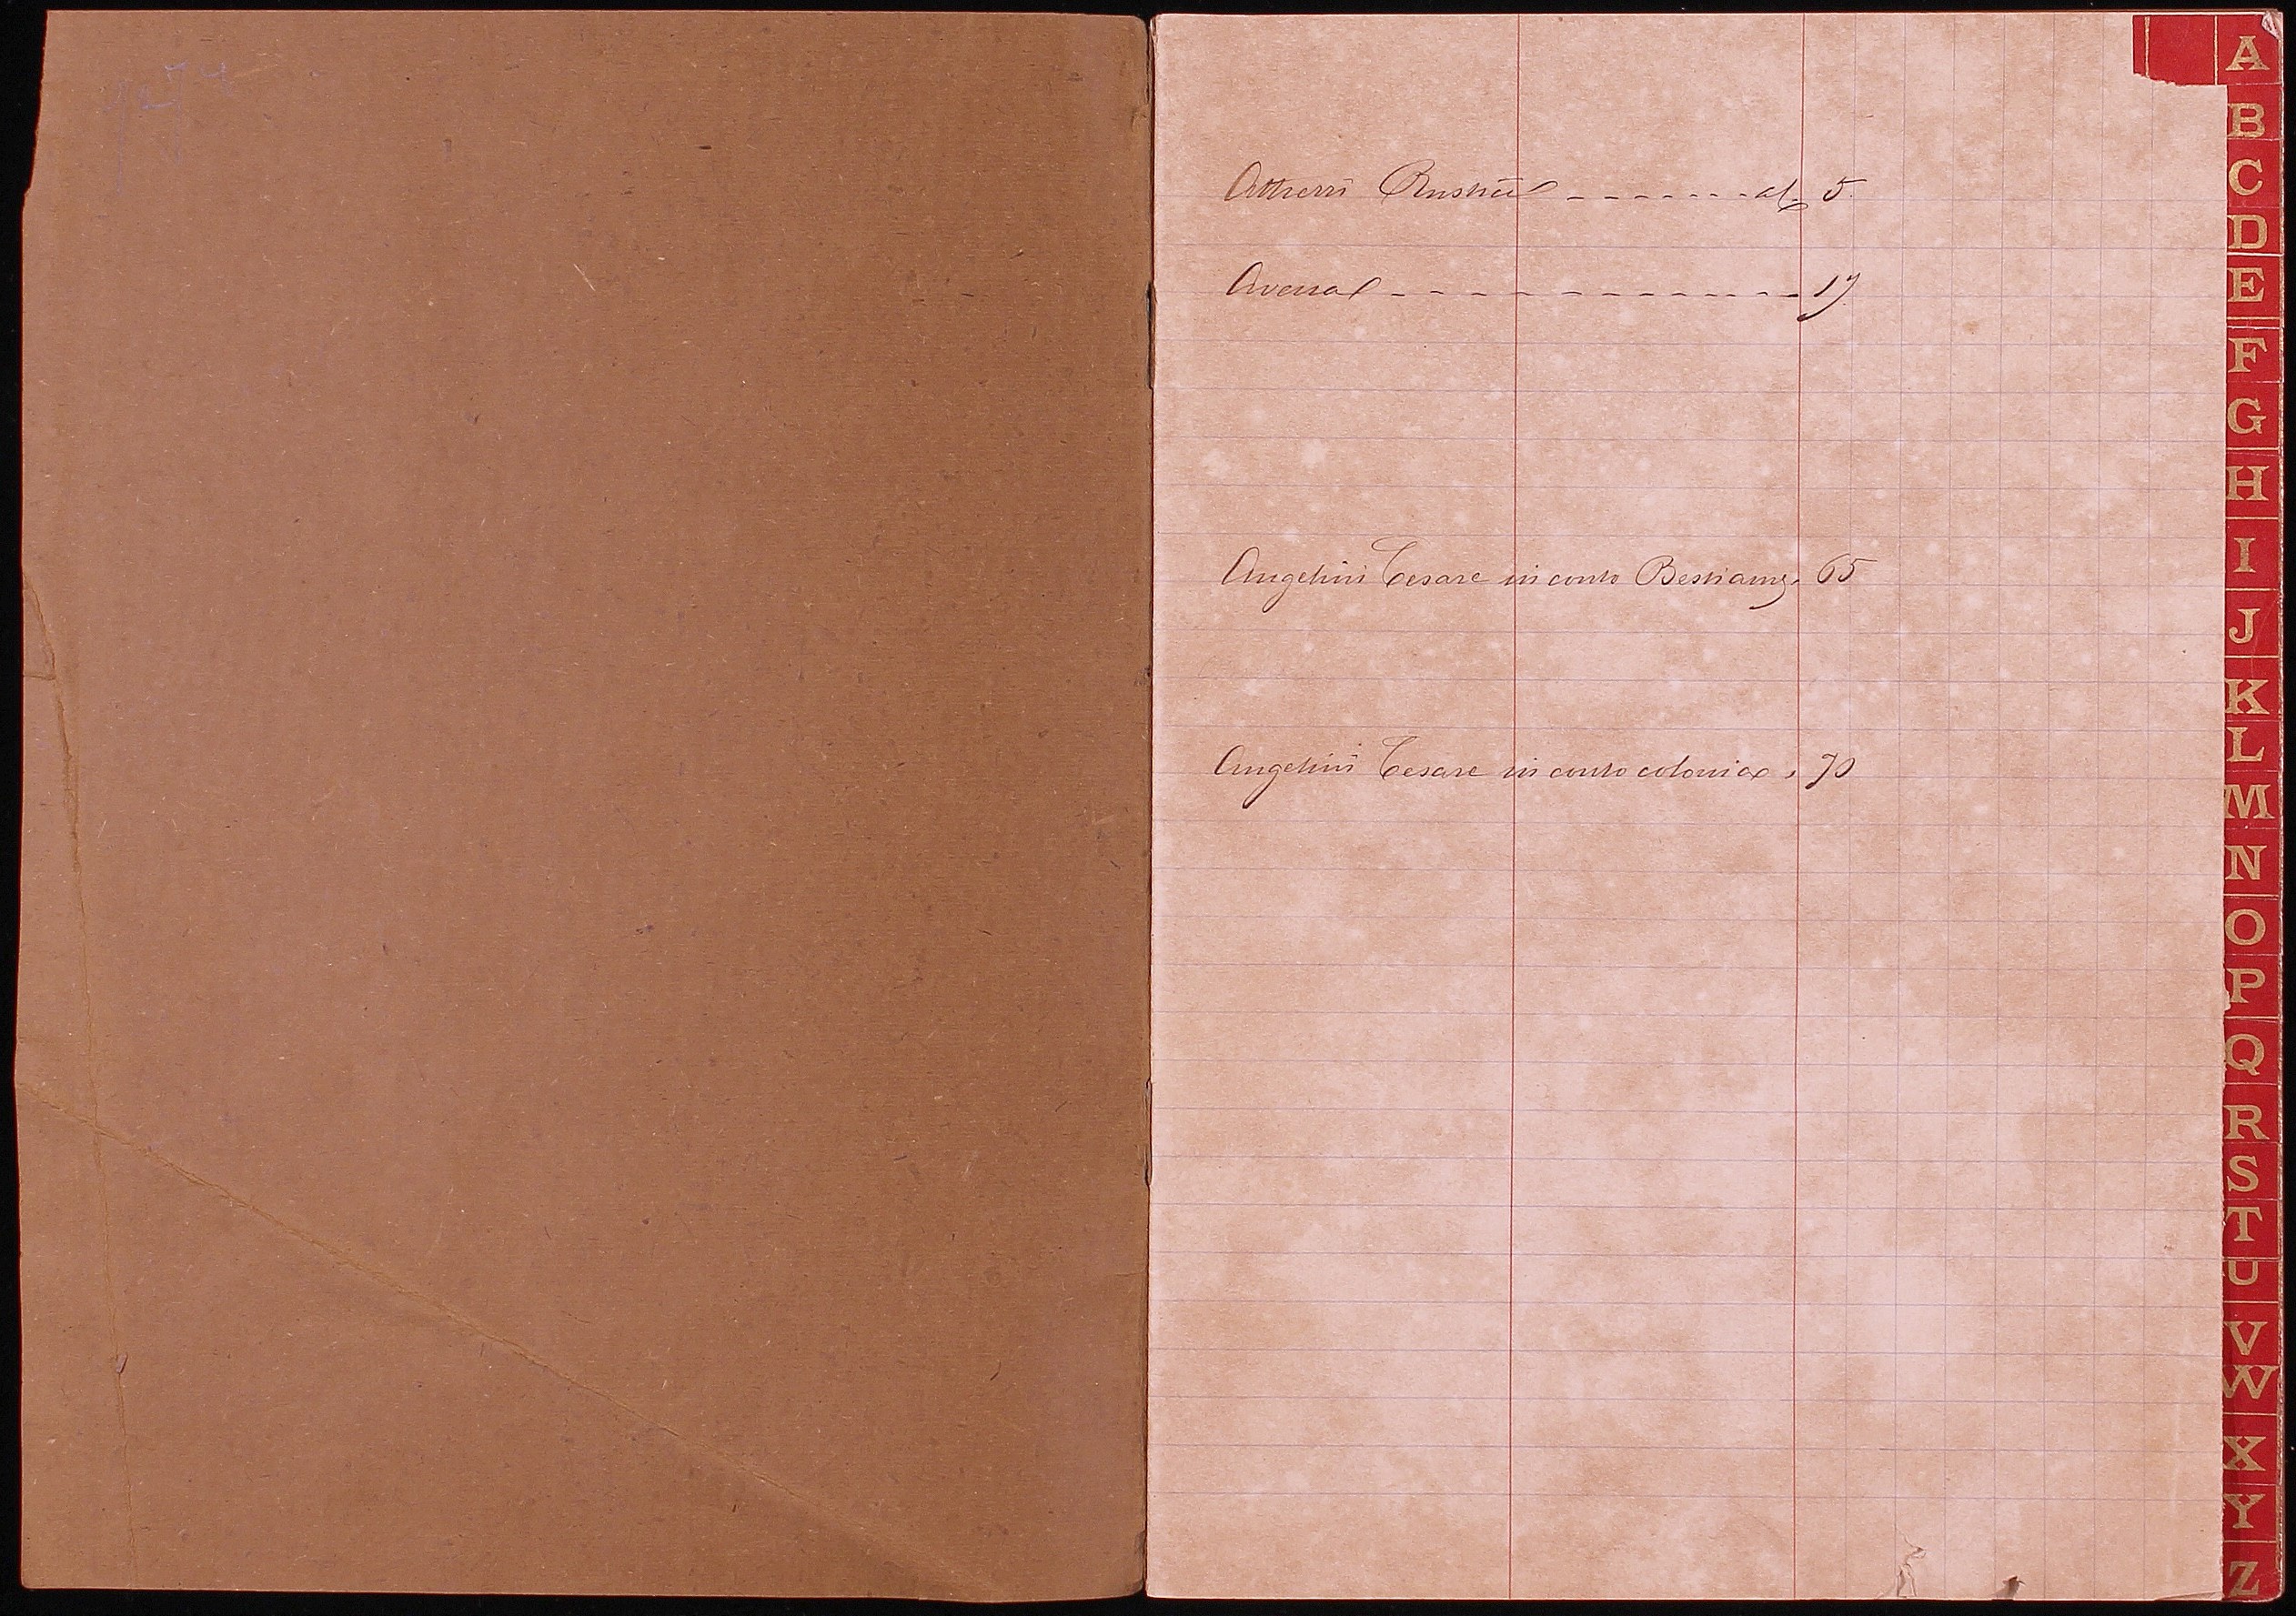 Attrezzi Rustici - - - - - - - al f. 5.
Avena - - - - - - - - - - - - - 17
Angelini Cesare in conto Bestiame, 65
Angelini Cesare in conto colonia , 70
A
B
C
D
E
F
G
H
I
J
K
L
M
N
O
P
Q
R
S
T
U
V
W
X
Y
Z